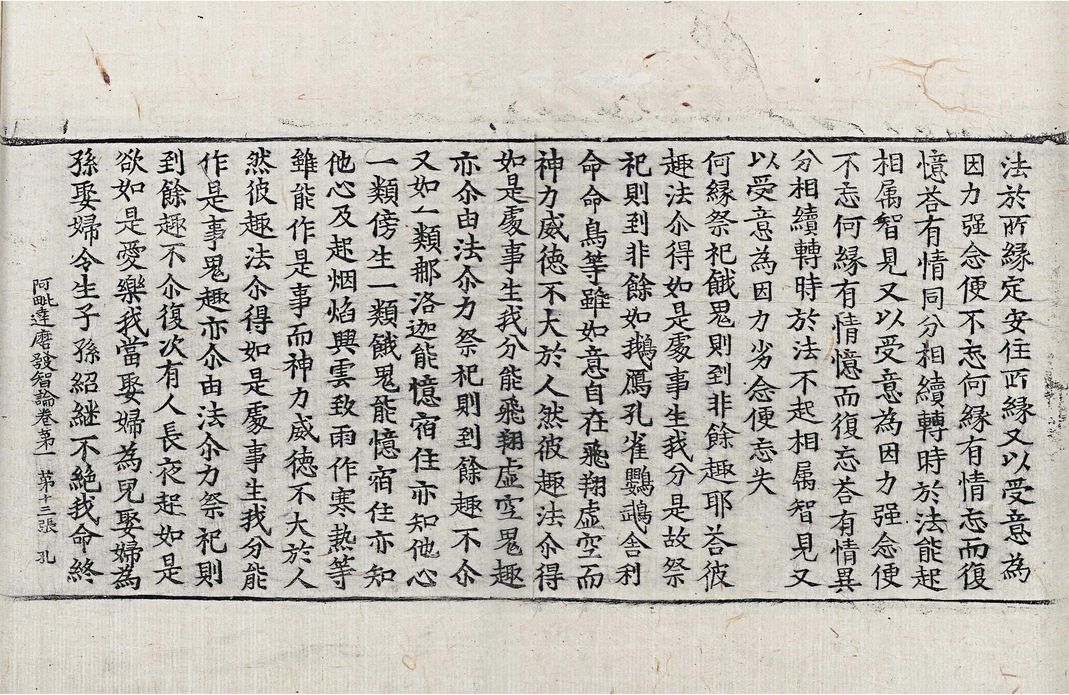 法於所緣定安住所緣又以受意為
因力强念便不忘何緣有情忘而復
憶荅有情同分相續轉時於法能起
相属智見又以受意為因力强念便
不忘何緣有情憶而復忘荅有情異
分相續轉時於法不起相属智見又
以受意為因力劣念便忘失
何緣祭祀餓鬼則到非餘趣耶荅彼
趣法尒得如是處事生我分是故祭
祀則到非餘如鵝鴈孔雀鸚鵡舎利
命命鳥等雖如意自在飛翔虛空而
神力威德不大於人然彼趣法尒得
如是處事生我分能飛翔虛空鬼趣
亦尒由法尒力祭祀則到餘趣不尒
又如一類那洛迦能憶宿住亦知他心
一類傍生一類餓鬼能憶宿住亦知
他心及起烟焰興雲致雨作寒熱等
雖能作是事而神力威德不大於人
然彼趣法尒得如是處事生我分能
作是事鬼趣亦尒由法尒力祭祀則
到餘趣不尒復次有人長夜起如是
欲如是愛樂我當娶婦為兒娶婦為
孫娶婦令生子孫紹継不絶我命終
阿毗達磨發智論卷第一 第十三張 孔